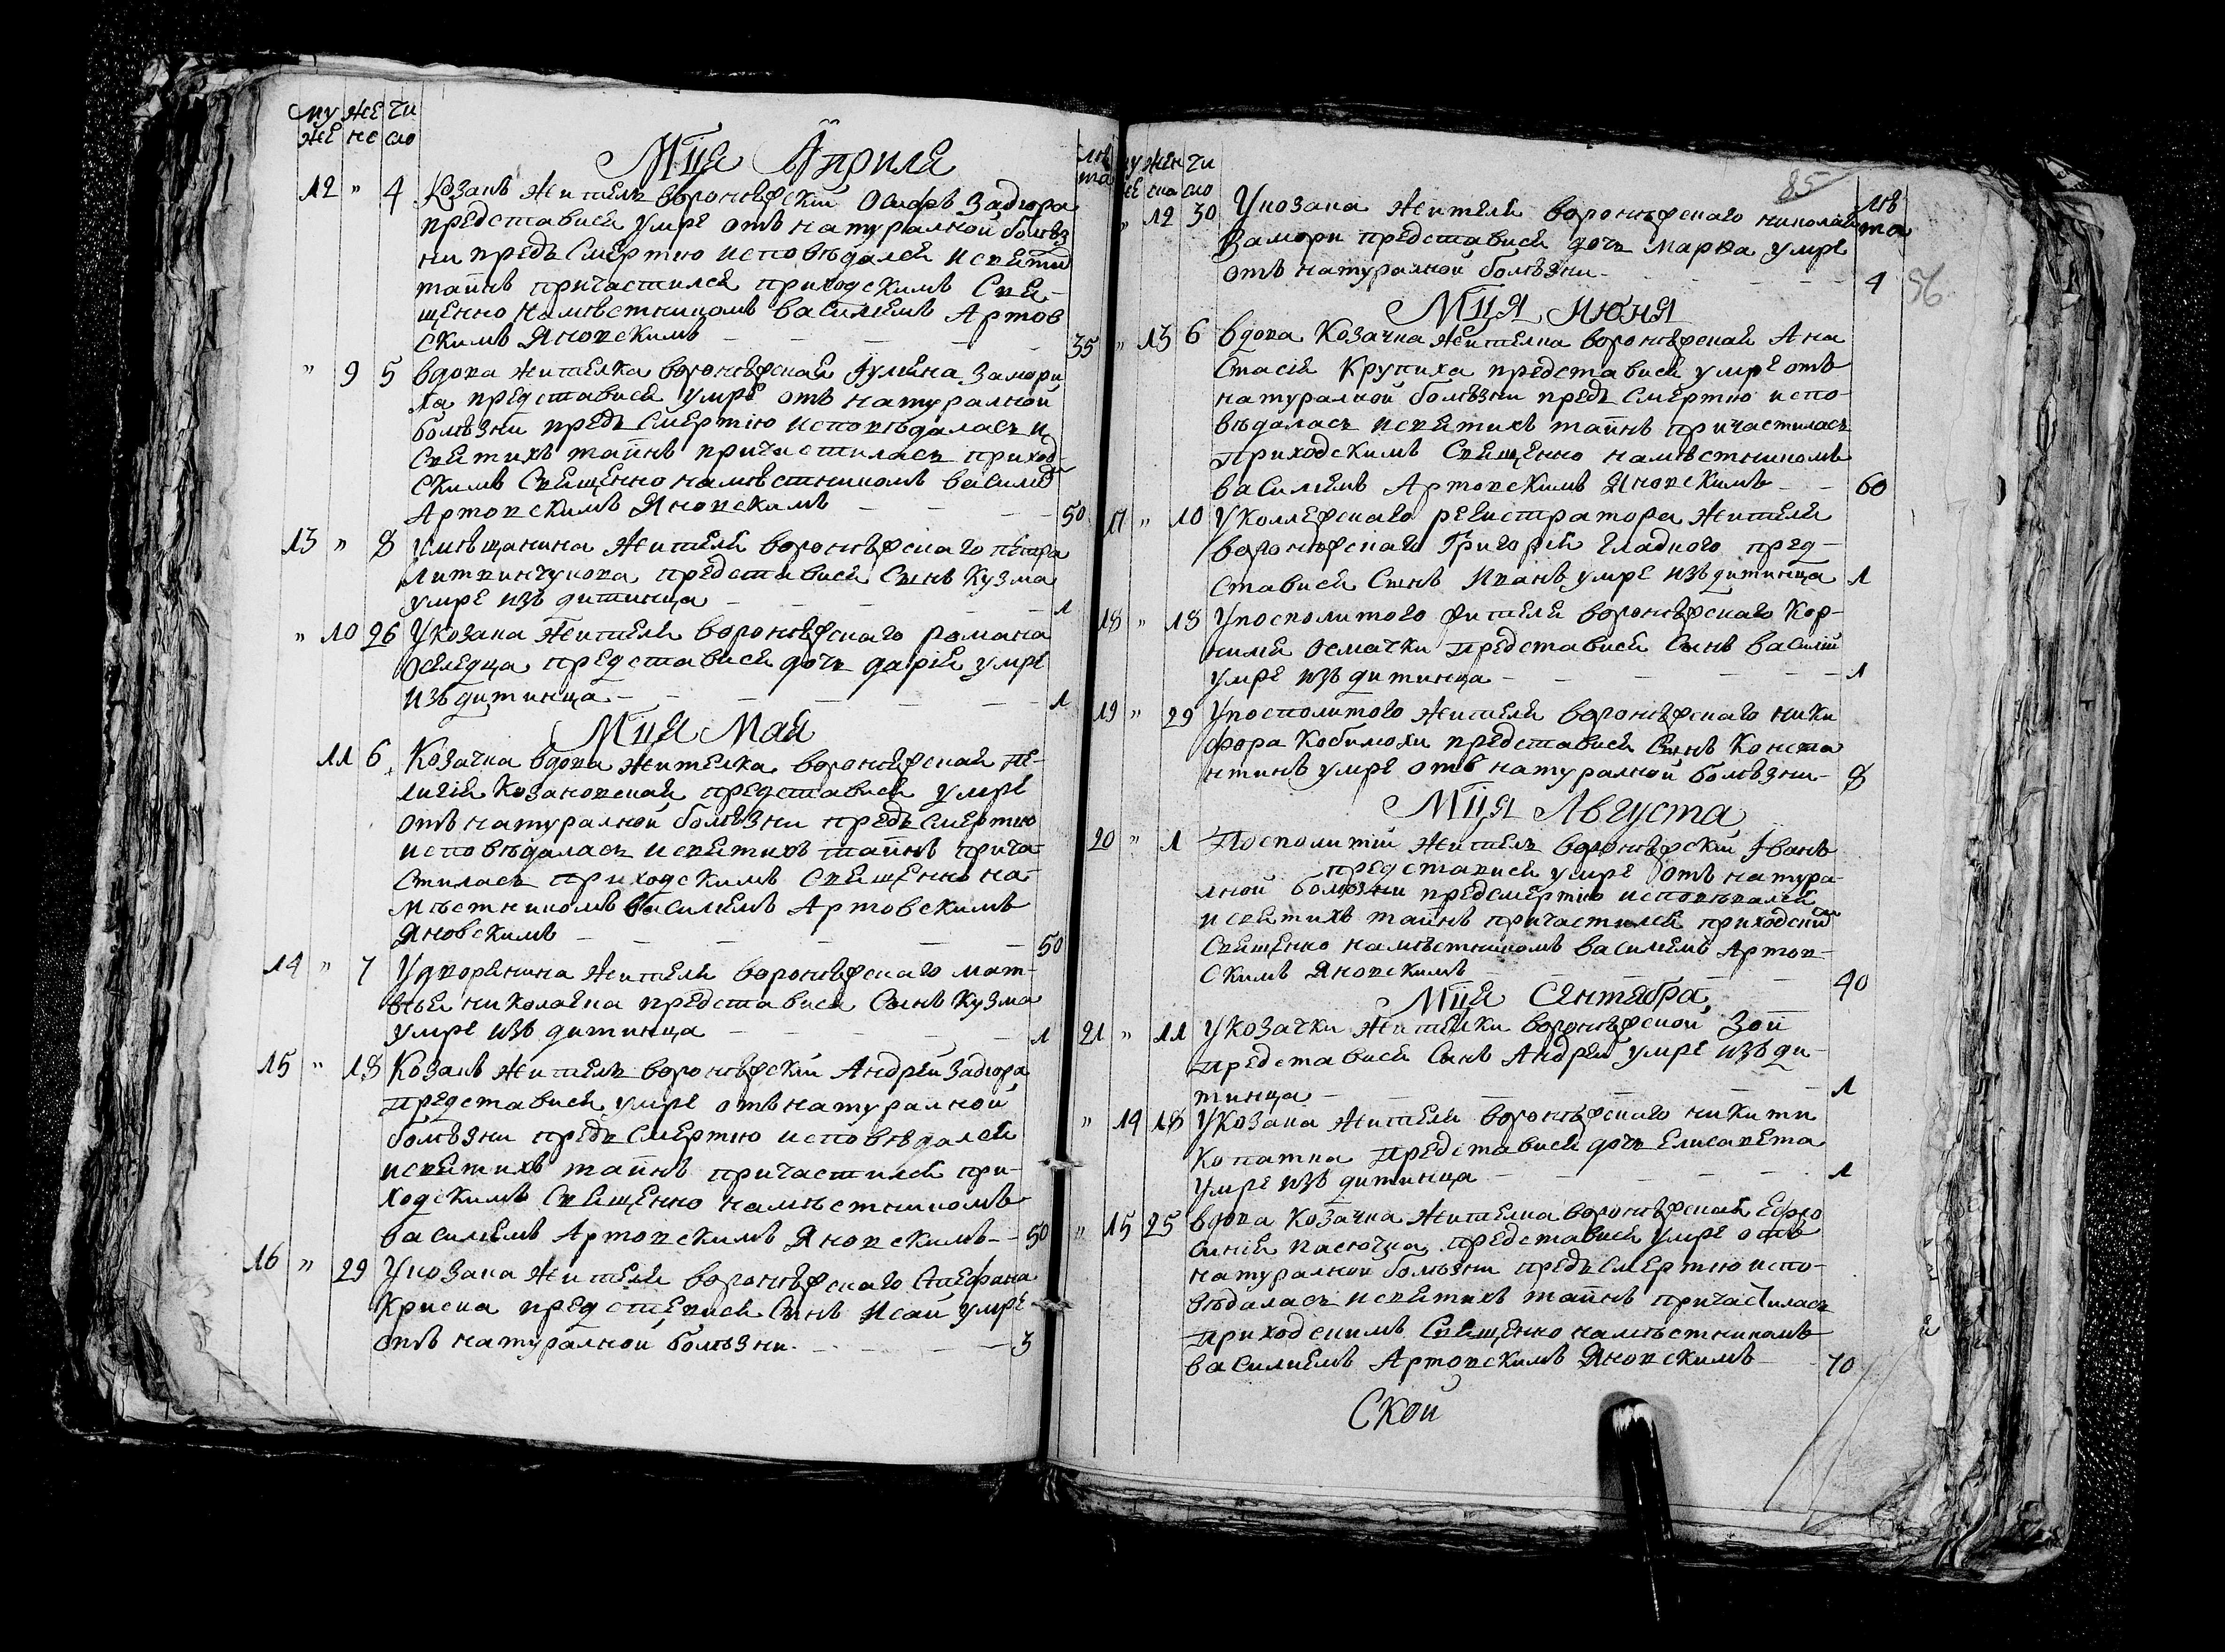 му же чи
же не сло
Мця Априля
лѣ
та
12 " 4 Козакъ житель воронѣжскій Осифъ Задюра
представися умре отъ натуралной болѣз
ни предъ Смертію исповѣдался и святи
таинъ причастился приходскимъ Свя-
щенно намѣстникомъ василиемъ Артов
скимъ Яновскимъ 35
" 9 5 вдова жителка воронѣжская Iулияна Замори
ха представися умре отъ натуралной
болѣзни предъ Смертію исповѣдалась и
Святихъ таинъ причастилась приход-
скимъ Священно намѣстникомъ василие
Артовскимъ Яновскимъ 50
13 " 8 Умѣщанина жителя воронѣжскаго петра
представися Сынъ Кузма
умре изъ дитинца 1
" 10 26 Укозака жителя воронѣжскаго романа
Оселедца представися дочь дарія умре
изъ дитинца 1
Мця Мая
11 6 Козачка вдова жителка воронѣжская пе-
лагія Козановская представися умре
отъ натуралной болѣзни предъ Смертію
исповѣдалась и святихъ таинъ прича-
стилась приходскимъ Священно на-
мѣстникомъ василиемъ Артовскимъ
Яновскимъ 50
14 " 7 Удворянина жителя воронѣжскаго мат-
вѣя николаева представися Сынъ Кузма
умре изъ дитинца 1
15 " 18 Козакъ житель воронѣжскій Андрей Задюра
представися умре отъ натуралной
болѣзни предъ Смертію исповѣдался
и святихъ таинъ причастился при-
ходскимъ Священно намѣстникомъ
василиемъ Артовскимъ Яновскимъ 50
16 " 29 Укозака жителя воронѣжскаго Стефана
Криска представися Сынъ Исаи умре
отъ натуралной болѣзни 3
85
56
му жен чи
же ска сло
лѣ
та
" 12 30 Укозака жителя воронѣжскаго николая
Замори представися дочь марва умре
отъ натуралной болѣзни 4
Мця Июня
" 13 6 вдова Козачка жителка воронѣжская Ана
стасія Крупиха представися умре отъ
натуралной болѣзни предъ Смертію испо-
вѣдалась и святихъ таинъ причастилась
приходскимъ Священно намѣстникомъ
василиемъ Артовскимъ Яновскимъ 60
17 " 10 Уколлежскаго регистратора жителя
воронѣжскаго Григорія гладкого пред-
ставися Сынъ Иванъ умре изъ дитинца 1
18 " 18 Упосполитого жителя воронѣжскаго Кор-
нилія Осмачки представися Сынъ василій
умре изъ дитинца 1
19 " 29 Упосполитого жителя воронѣжскаго ники
фора Кобилюхи представися Сынъ Конста
нтинъ умре отъ натуралной болѣзни 8
Мця Августа
20 " 1 Посполитій житель воронѣжскій Iванъ
представися умре отъ натура-
лной болѣзни предсмертію исповѣвался
и святихъ таинъ причастился приходски
Священно намѣстникомъ василиемъ Артов-
скимъ Яновскимъ 40
Мця Сентября
21 " 11 Укозачки жителки воронѣжской Зои
представися Сынъ Андрей умре изъ ди-
тинца 1
" 14 18 Укозака жителя воронѣжскаго никити
Копатка представися дочь Елисавета
умре изъ дитинца 1
" 15 25 вдова Козачка жителка воронѣжская Ефро
синія представися умре отъ
натуралной болѣзни предъ Смертію испо-
вѣдалась и святихъ таинъ причастилась
приходскимъ Священно намѣстникомъ
василиемъ Артовскимъ Яновскимъ 70
Ской